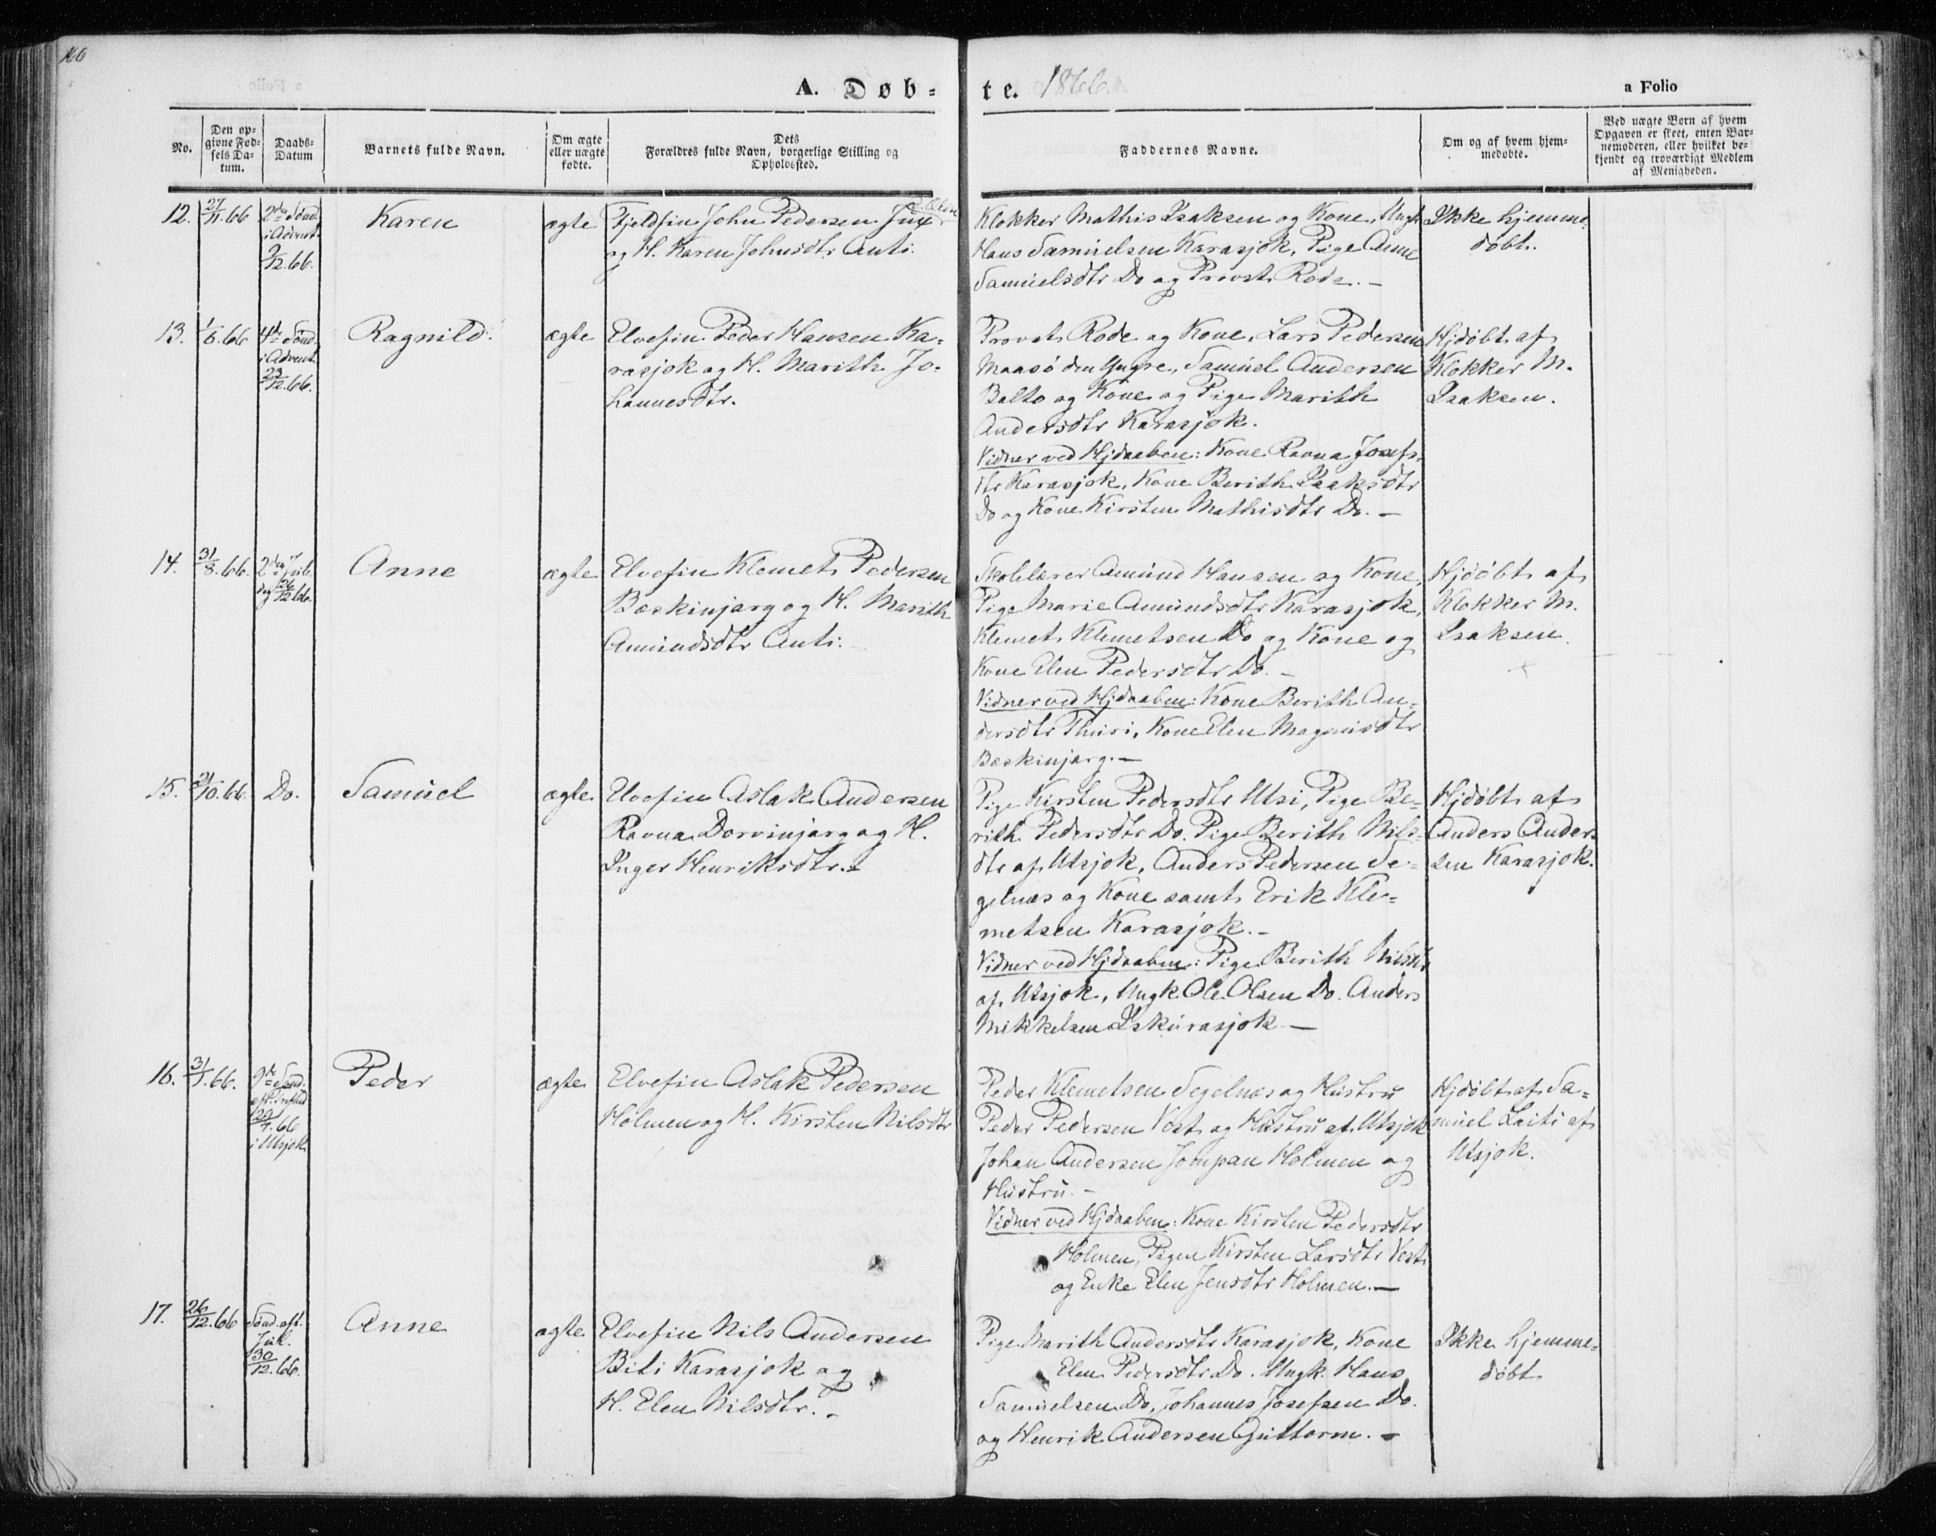 A. Døb-te. 1866.
a Folio
No.
Den opgivne Fødsels Datum.
Daabs-Datum
Barnets fulde Navn.
Om ægte eller uægte fødte.
Dets Forældres fulde Navn, borgerlige Stilling og Opholdssted.
Faddernes Navne.
Om og af hvem hjemmedøbte.
Ved uægte Børn af hvem Opgaven er skeet, enten Barnemoderen, eller hvilket bekjendt og troværdigt Medlem af Menigheden.
12. 27/11.66 2den Sønd. i Advent 9/12.66. Karen ægte
Fjeldfin John Pedersen
og H. Karen Johnsdtr Anti.
Klokker Mathis Isaksen og Kone, Ungk.
Hans Samuelsen Karasjok, Pige Anne
Samuelsdtr Do og Provst Rode. —
Ikke hjemme-
døbt.
13. 1/8.66 4de Sønd. i Advent 23/12.66. Ragnild. ægte
Elvefin Peder Hansen Ka-
rasjok og H. Marith Jo-
hannesdtr.
Provst Rode og Kone, Lars Pedersen
Maasø den Yngre, Samuel Andersen
Balto og Kone og Pige Marith
Andersdtr Karasjok.
Vidner ved Hjdaaben: Kone Ravna Josefs-
dtr Karasjok, Kone Berith Isaksdtr
Do og Kone Kirsten Mathisdtr Do. —
Hjdøbt af
Klokker M.
Isaksen.
14. 31/8.66. 2den Jule-dag 26/12.66. Anne ægte
Elvefin Klemet Pedersen
Bæskinjarg og H. Marith
Amundsdtr Anti.
Skolelærer Amund Hansen og Kone,
Pige Marie Amundsdtr Karasjok,
Klemet Klemetsen Do og Kone og
Kone Elen Pedersdtr Do. —
Vidner ved Hjdaaben: Kone Berith An-
dersdtr Thuri, Kone Elen Magnusdtr
Bæskinjarg. —
Hjdøbt af
Klokker M.
Isaksen.
15. 21/10.66. Do. Samuel ægte.
Elvefin Aslak Andersen
Ravna Dorvinjarg og H.
Inger Henriksdtr. —
Pige Kirsten Pedersdtr Utsi, Pige Be-
rith Pedersdtr Do. Pige Berith Nils-
dtr af Utsjok, Anders Pedersen Se-
gelnæs og Kone samt Erik Kle-
metsen Karasjok. —
Vidner ved Hjdaaben: Pige Berith Nilsdtr
af Utsjok, Ungk Ole Olsen Do. Anders
Mikkelsen Iskurasjok —
Hjdøbt af
Anders Ander-
sen Karasjok.
16. 3/1.66. 9de Sønd. i Utsjok Peder ægte
Elvefin Aslak Pedersen
Holmen og H. Kirsten Nilsdtr
Peder Klemetsen Segelnæs og Hustru
Peder Pedersen Vest og Hustru af Utsjok
Johan Andersen Jompan Holmen og
Hustru. —
Vidner ved Hjdaaben: Kone Kirsten Pedersdtr
Holmen, Pigen Kirsten Larsdtr Vest
og Enke Elen Jensdtr Holmen. —
Hjdøbt af Sa-
muel Laiti af
Utsjok.
17. 26/12.66 Sønd. eft. Jul. 30/12.66. Anne ægte
Elvefin Nils Andersen
Biti Karasjok og
H. Elen Nilsdtr. —
Pige Marith Andersdtr Karasjok, Kone
Elen Pedersdtr Do. Ungk. Hans
Samuelsen Do, Johannes Josefsen Do.
og Henrik Andersen Guttorm. —
Ikke hjemme-
døbt